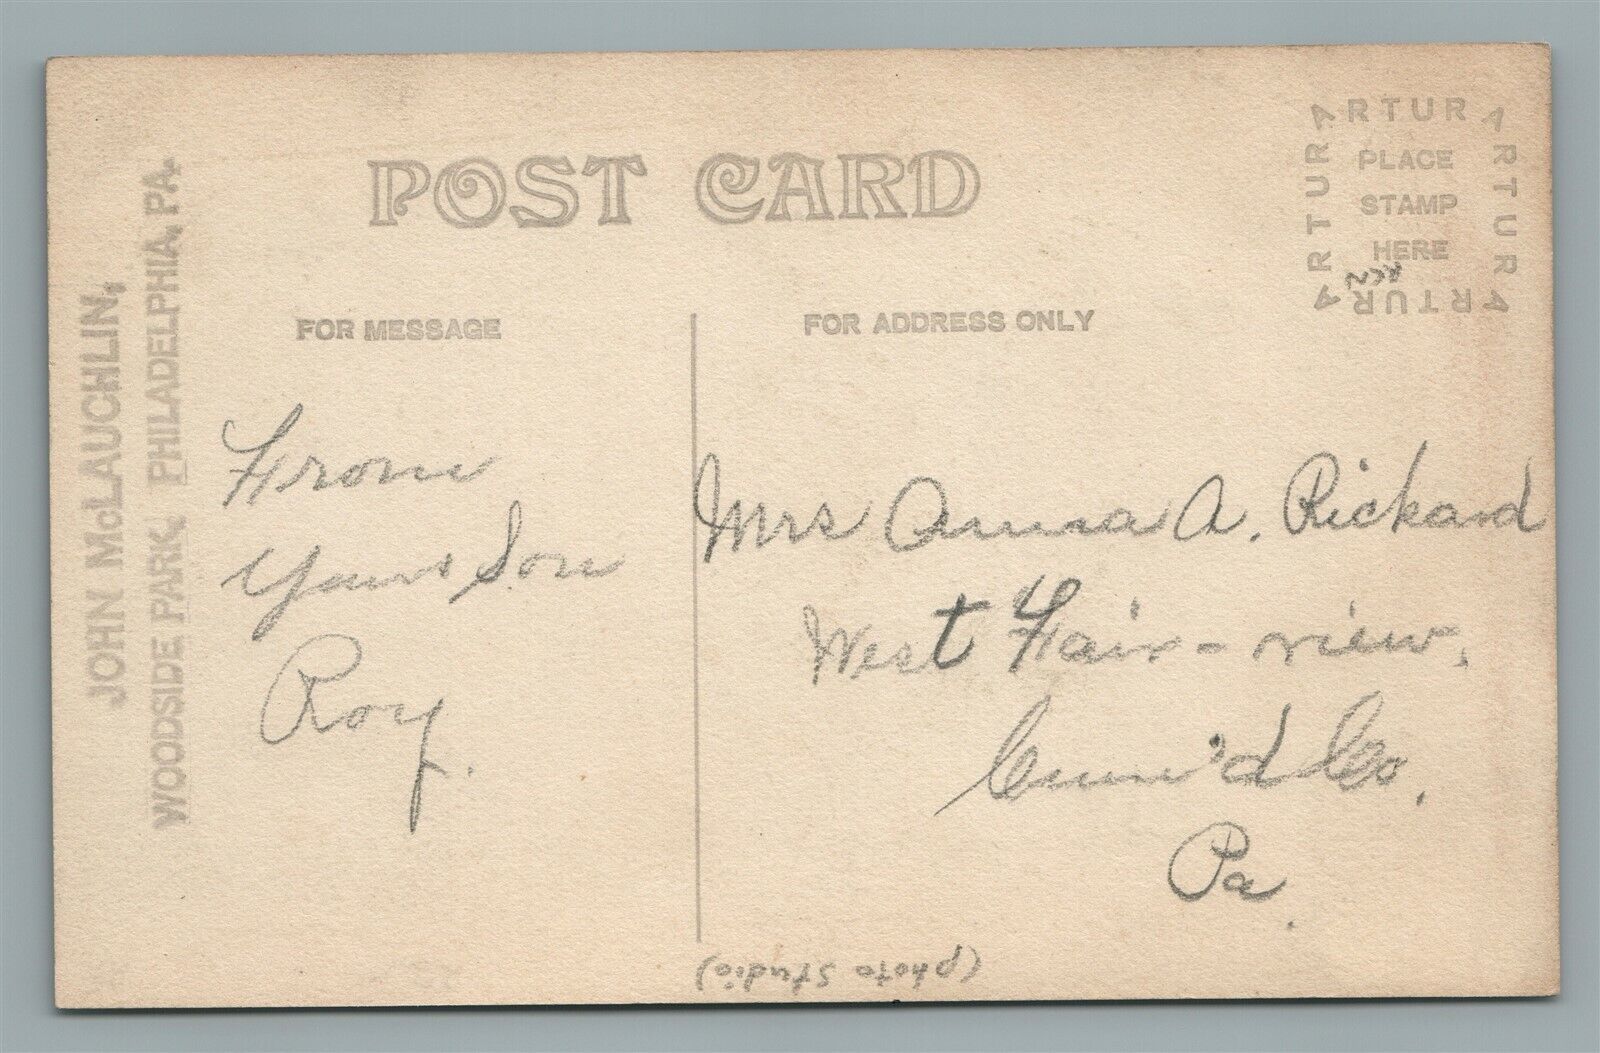 POST CARD
ARTURA
PLACE
STAMP
HERE
ARTURA
ARTURA
ARTURA
JOHN McLAUCHLIN,
WOODSIDE PARK, PHILADELPHIA, PA.
FOR MESSAGE
From
Your Son
Roy.
FOR ADDRESS ONLY
Mrs Anna A. Rickard
West Fair-view,
Cum'd Co,
Pa.
(photo studio)